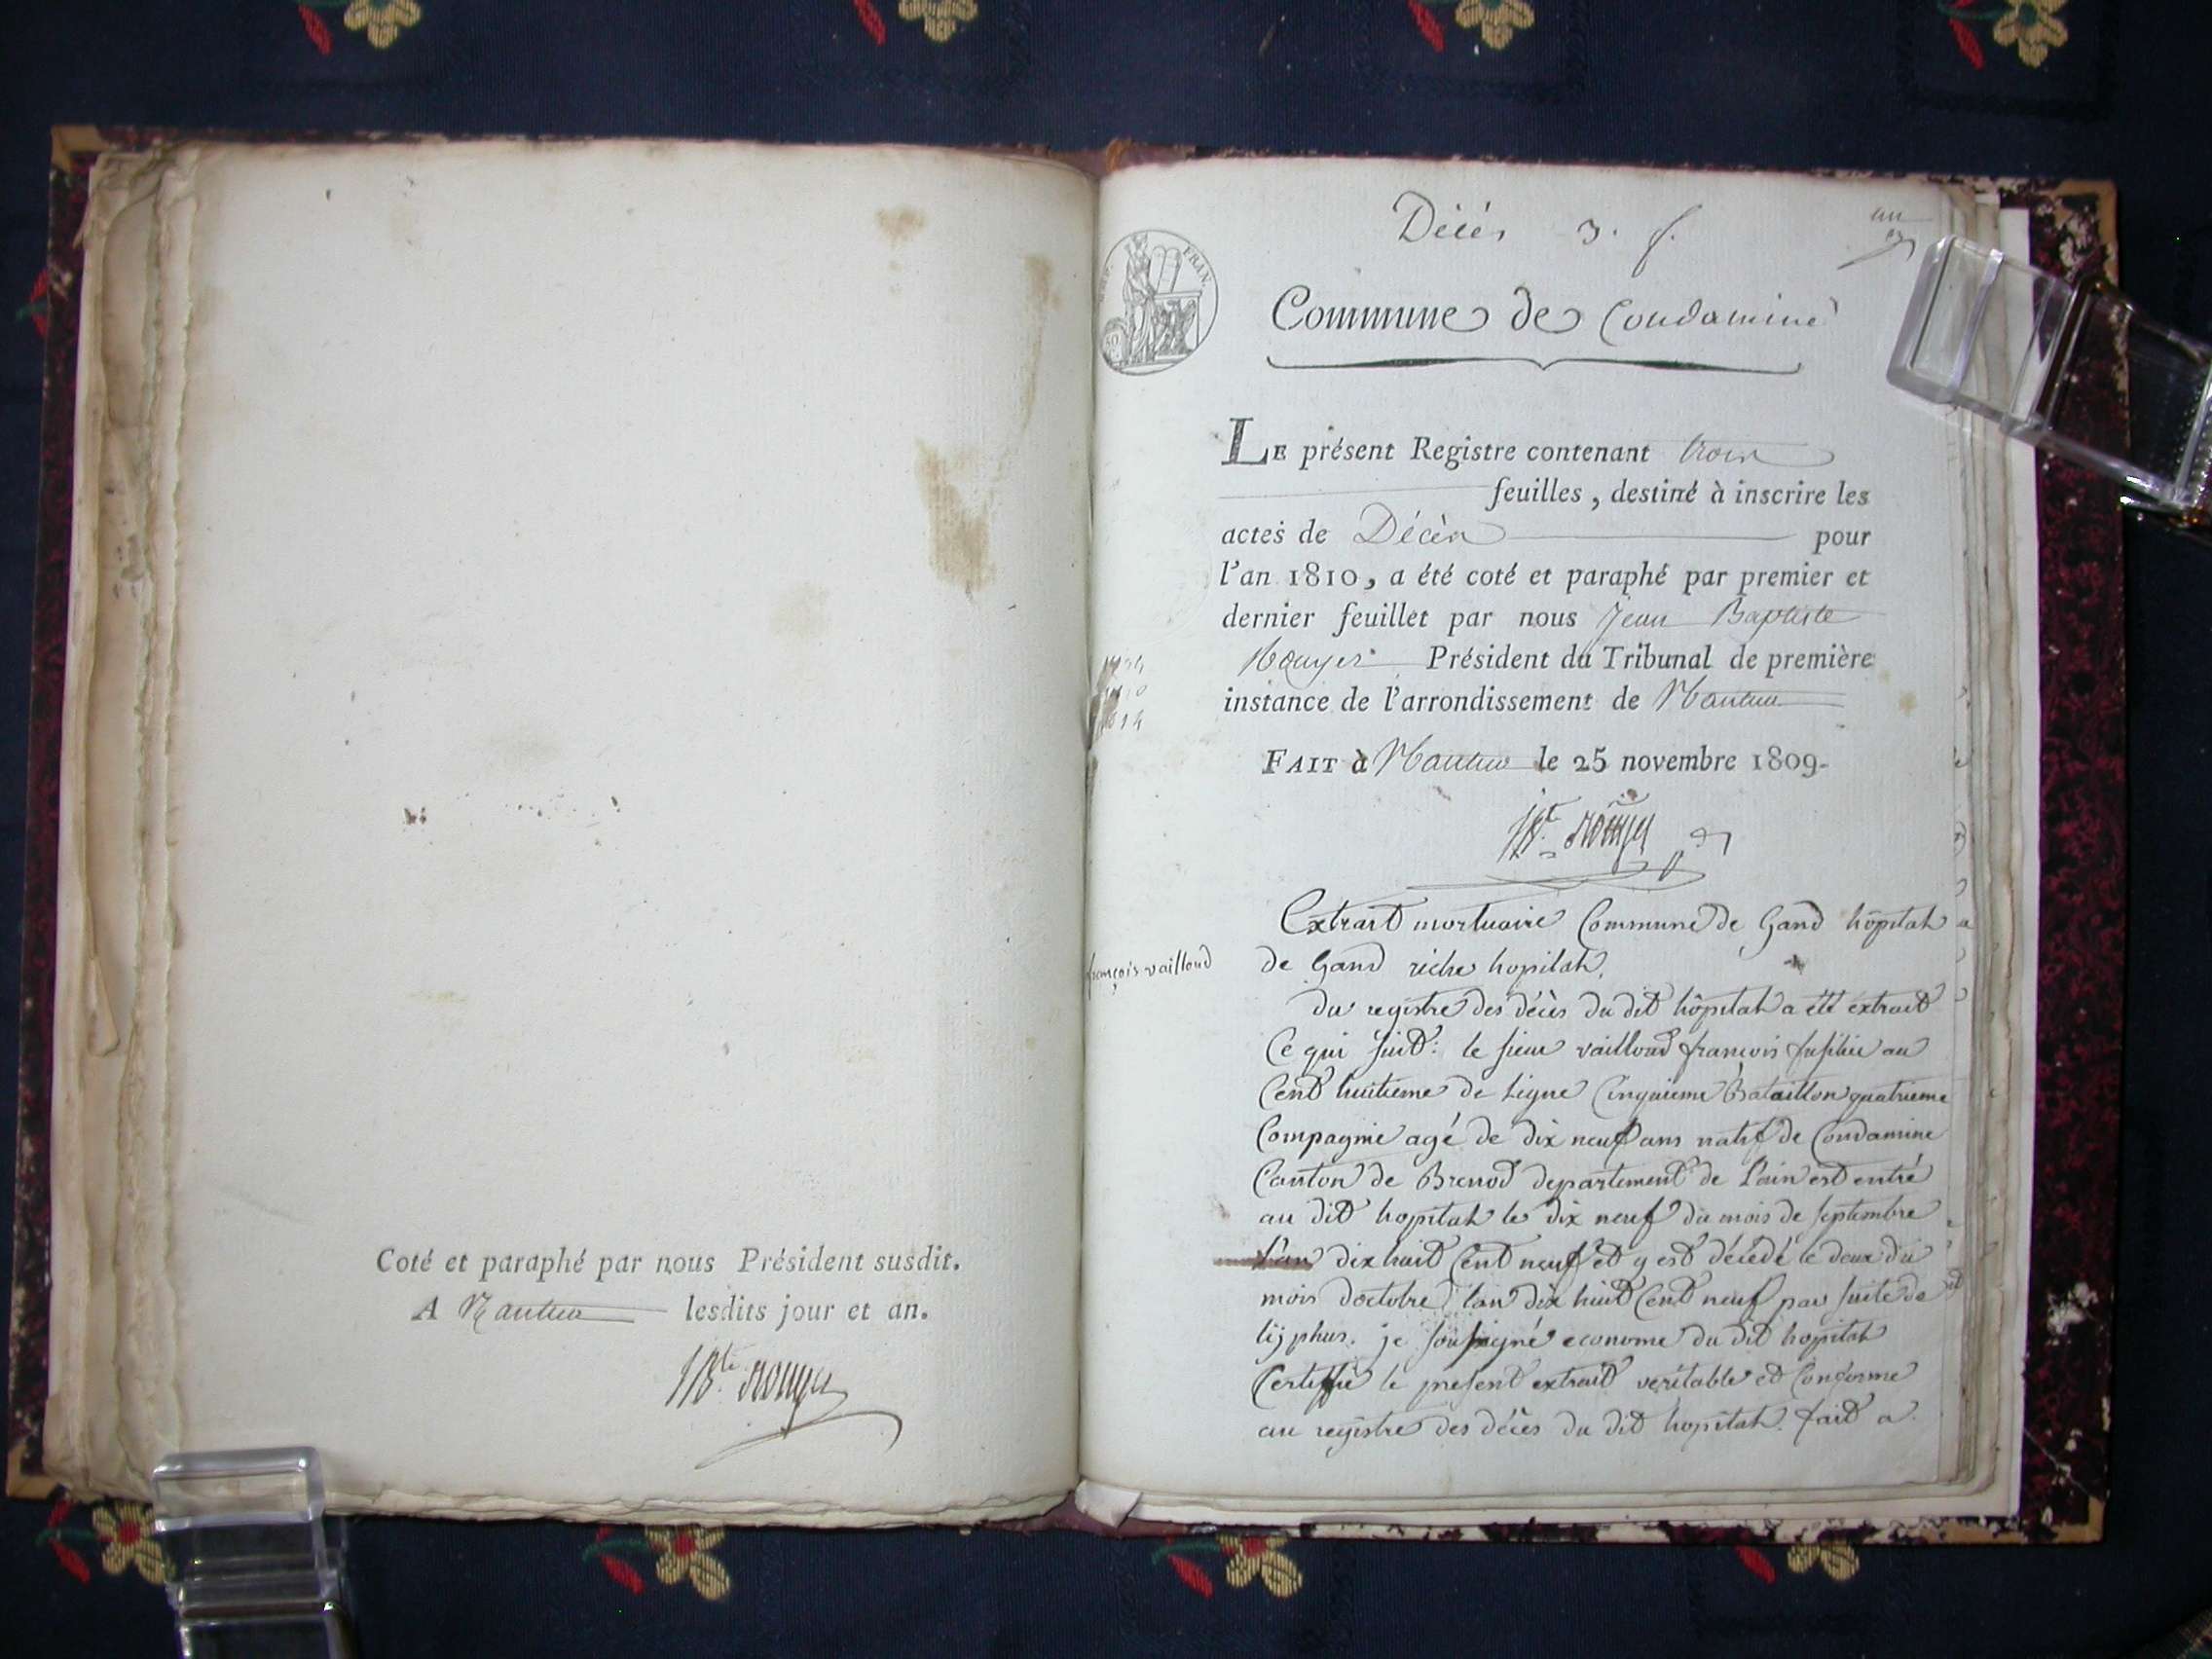 Coté et paraphé par nous Président susdit.
A Nantua lesdits jour et an.
JBte. Rouyer
Décés 3. f.
un
FRAN.
Commune de Condamine
LE présent Registre contenant trois
feuilles, destiné à inscrire les
actes de Décès pour
l'an 1810, a été coté et paraphé par premier et
dernier feuillet par nous Jean Baptiste
Rouyer Président du Tribunal de première
instance de l'arrondissement de Nantua
FAIT à Nantua le 25 novembre 1809.
JBte. Rouyer
françois vailloud
Extrait mortuaire Commune de Gand hôpital
de Gand riche hopital.
du registre des décès du dit hôpital a été extrait
Ce qui suit: le sieur vailloud françois fusilier au
Cent huitieme de Ligne Cinquieme Bataillon quatrieme
Compagnie agé de dix neuf ans natif de Condamine
Canton de Brenod departement de l'ain est entré
au dit hopital le dix neuf du mois de septembre
l'an dix huit Cent neuf et y est décédé le deux du
mois doctobre l'an dix huit Cent neuf par suite de
tijphus. je soussigné econome du dit hopital
Certiffie le present extrait veritable et Conforme
au registre des décès du dit hopital. fait a